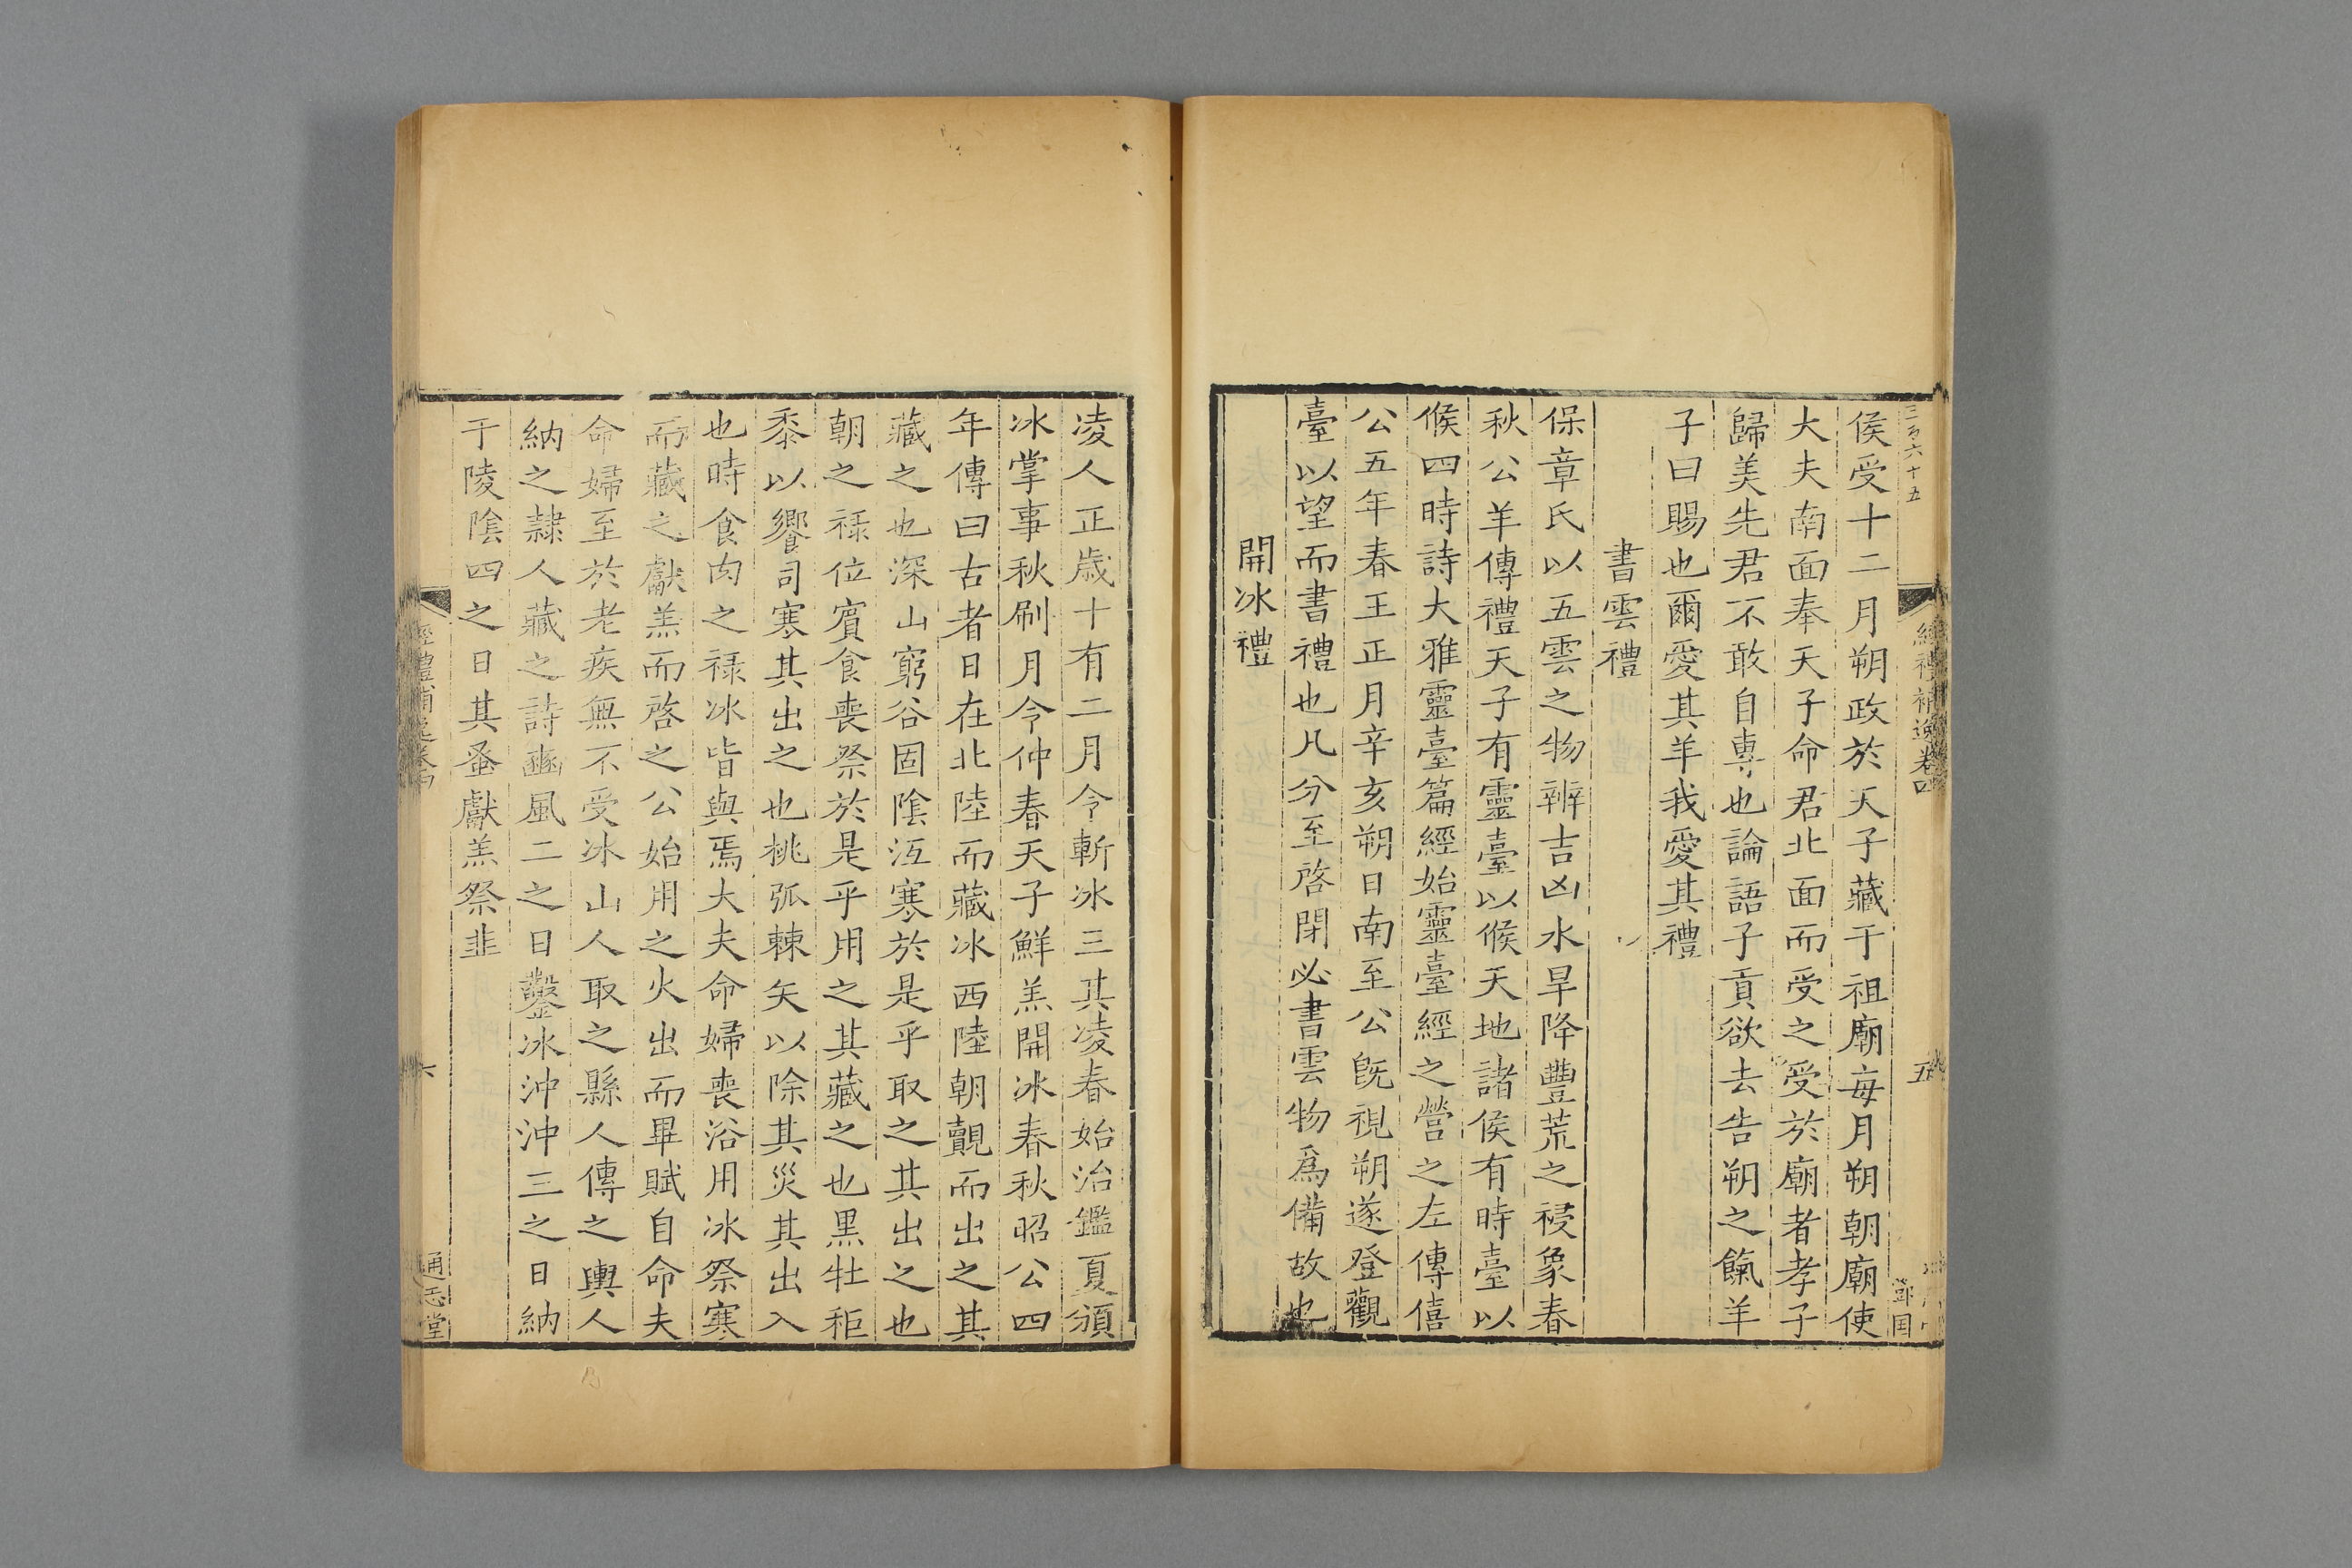 三百六十五
侯受十二月朔政於天子藏于祖廟每月朔朝廟使
大夫南面奉天子命君北面而受之受於廟者孝子
歸美先君不敢自專也論語子貢欲去告朔之餼羊
子曰賜也爾愛其羊我愛其禮
書雲禮
保章氏以五雲之物辨吉凶水旱降豐荒之祲象春
秋公羊傳禮天子有靈臺以候天地諸侯有時臺以
候四時詩大雅靈臺篇經始靈臺經之營之左傳僖
公五年春王正月辛亥朔日南至公旣視朔遂登觀
臺以望而書禮也凡分至啓閉必書雲物爲備故也
開冰禮
經禮補逸卷四
五
凌人正歲十有二月令斬冰三其凌春始治鑑夏頒
冰掌事秋刷月令仲春天子鮮羔開冰春秋昭公四
年傳曰古者日在北陸而藏冰西陸朝覿而出之其
藏之也深山窮谷固陰沍寒於是乎取之其出之也
朝之祿位賓食喪祭於是乎用之其藏之也黑牡秬
黍以饗司寒其出之也桃弧棘矢以除其災其出入
也時食肉之祿冰皆與焉大夫命婦喪浴用冰祭寒
而藏之獻羔而啓之公始用之火出而畢賦自命夫
命婦至於老疾無不受冰山人取之縣人傳之輿人
納之隸人藏之詩豳風二之日鑿冰沖沖三之日納
于陵陰四之日其蚤獻羔祭韭
經禮補逸卷四
六
通志堂